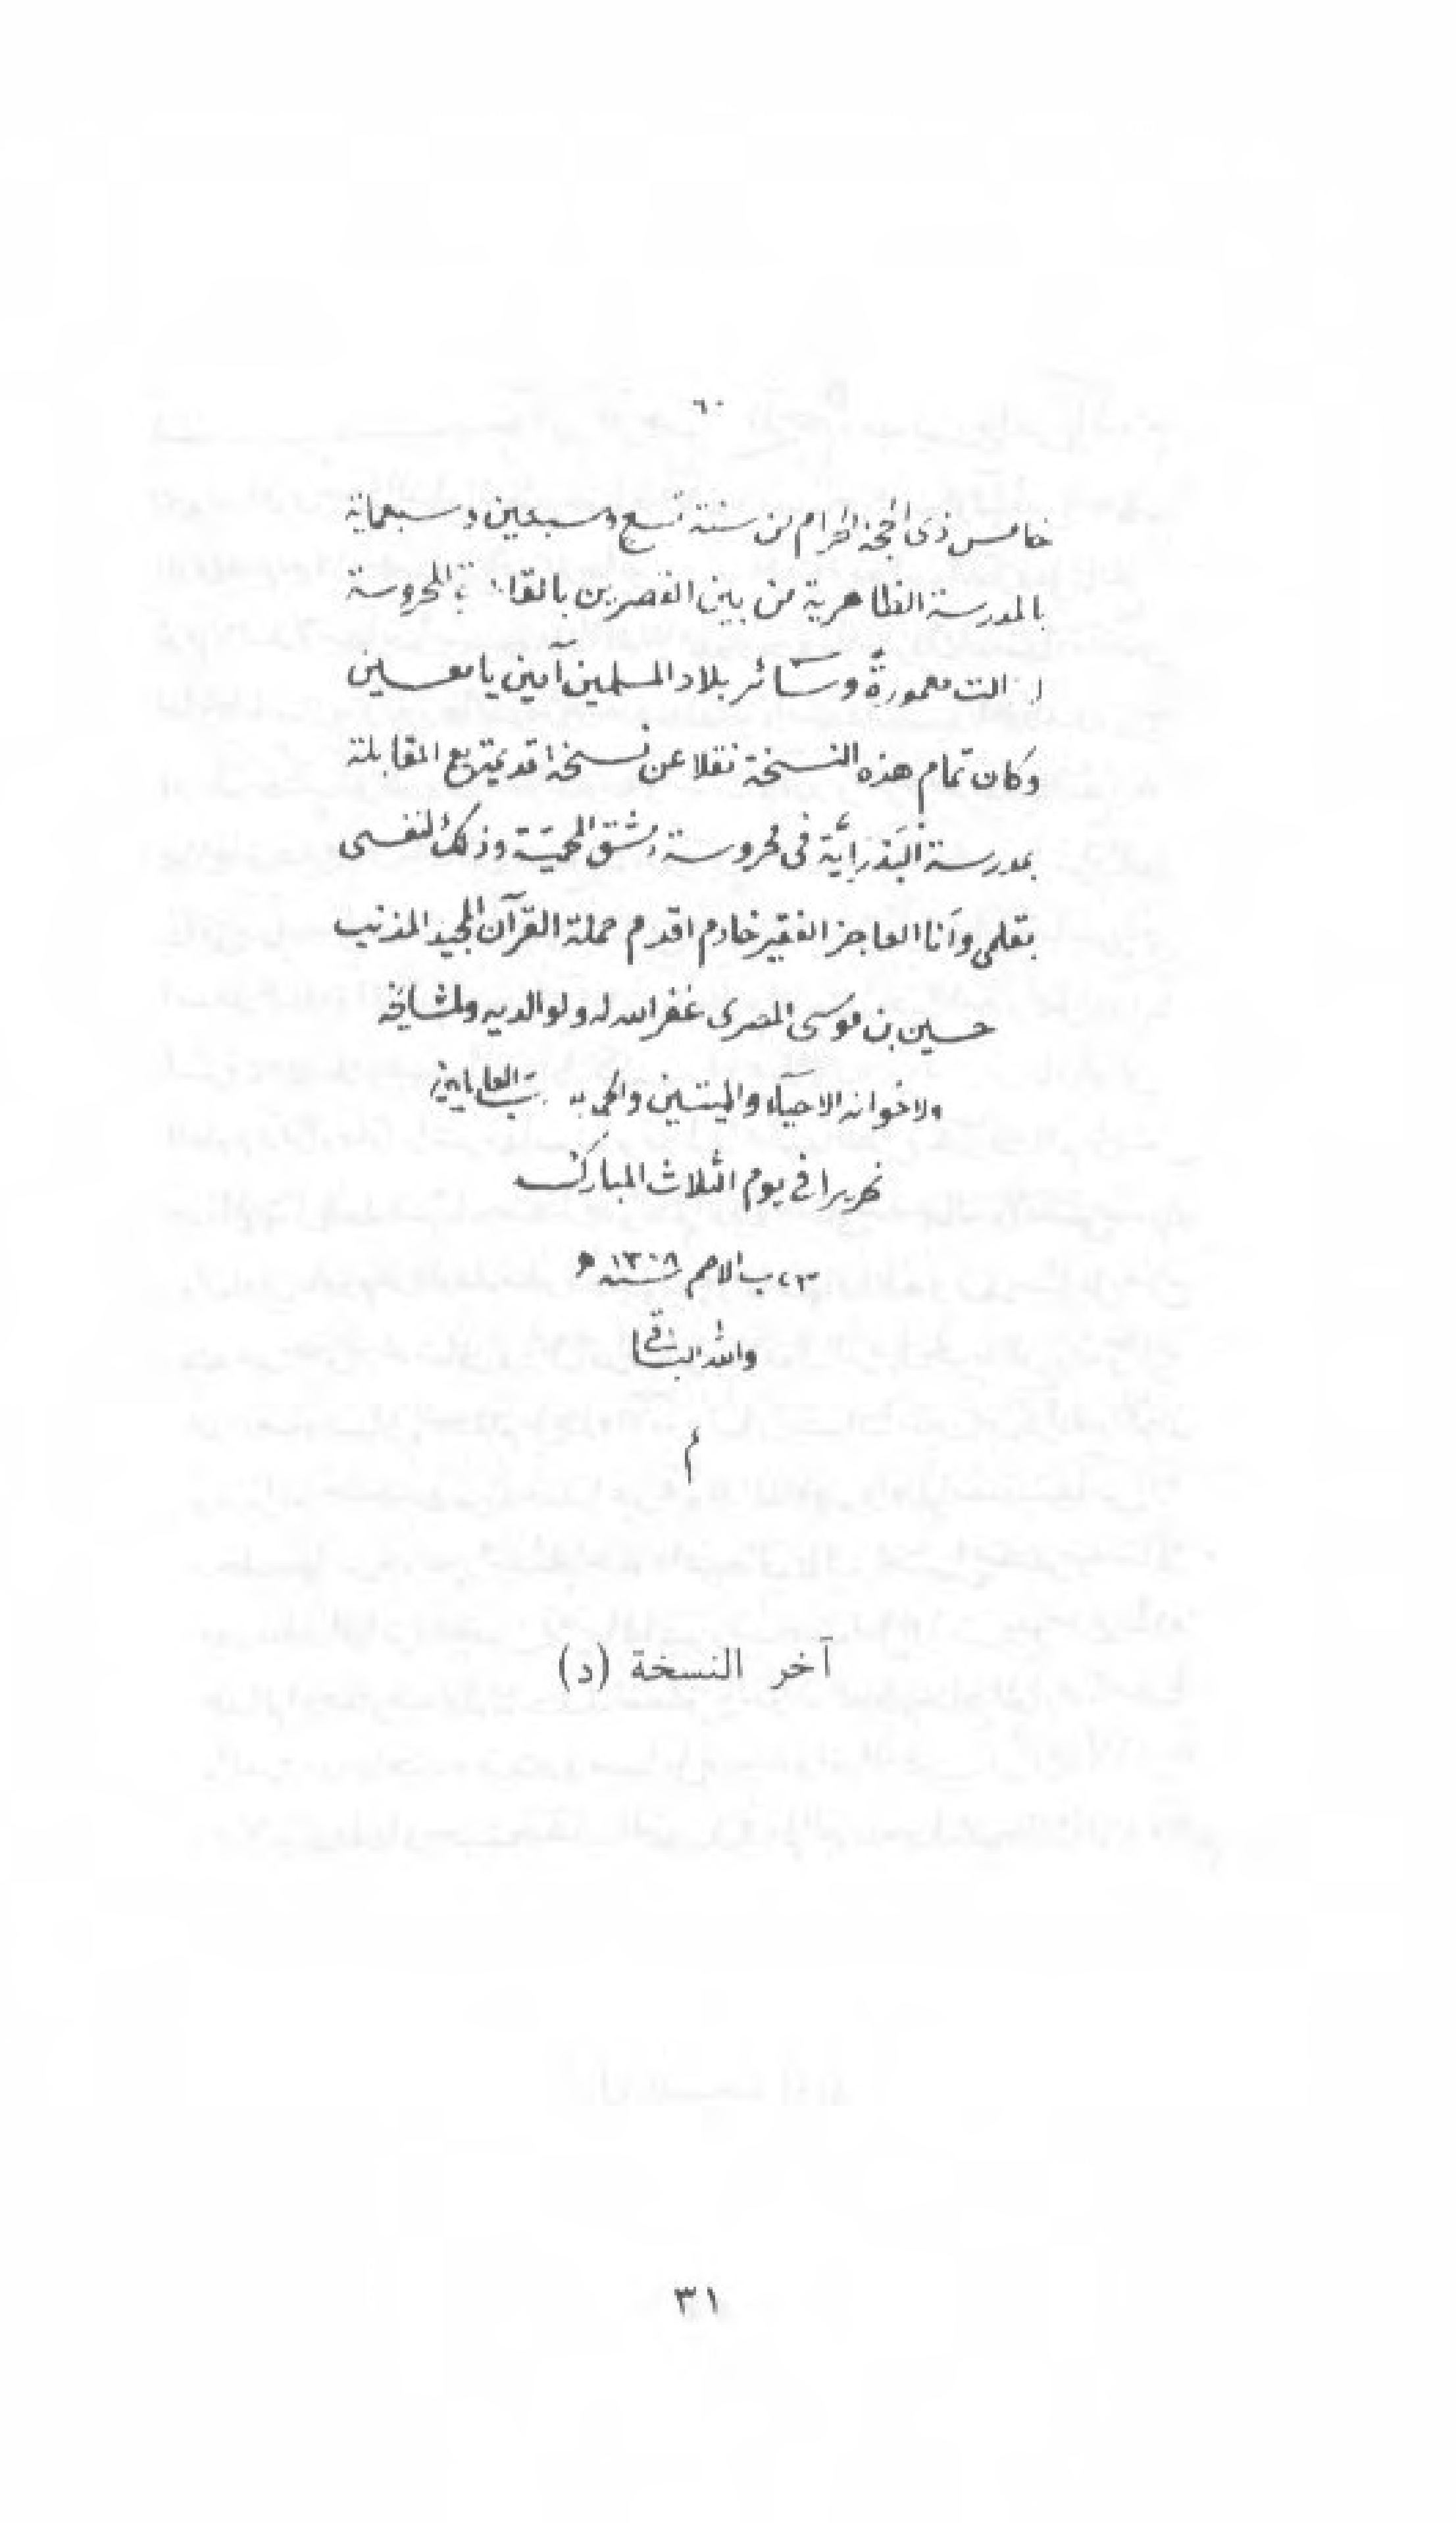 ٦٠
خامس ذى الحجة الحرام من سنة تسع وسبعين وسبعمائة
بالمدرسة الظاهرية من بين القصرين بالقا المحروسة
زالت معمورة وسائر بلاد المسلمين آمين يا معين
وكان تمام هذه النسخة نقلا عن نسخة قديمة مع المقابلة
بمدرسة البَذرأية فى محروسة دمشق المحميّة وذلك لنفسى
بقلمى وأنا العاجز الفقير خادم اقدم حملة القرآن المجيد المذنب
حسين بن موسى المصرى غفر الله له ولوالديه ولمشايخه
ولاخوانه الاحيآء والميتين والحمد لله ربّ العالمين
تحريرا فى يوم الثلاث المبارك
٢٣ ب الاصم سنة ١٣٠٨ ه
والله الباقى
م
آخر النسخة (د)
٣١